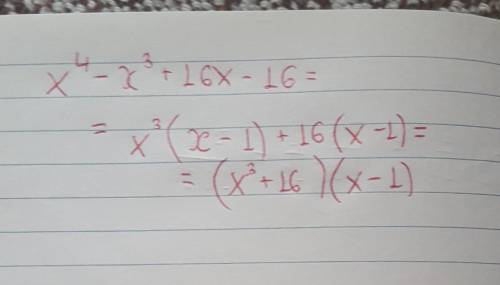 x⁴ - x³ + 16x - 16 =
= x³(x - 1) + 16(x - 1) =
= (x³ + 16)(x - 1)